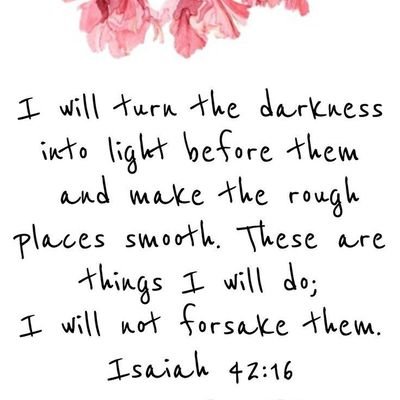 I will turn the darkness
into light before them
and make the rough
places smooth. These are
things I will do;
I will not forsake them.
Isaiah 42:16